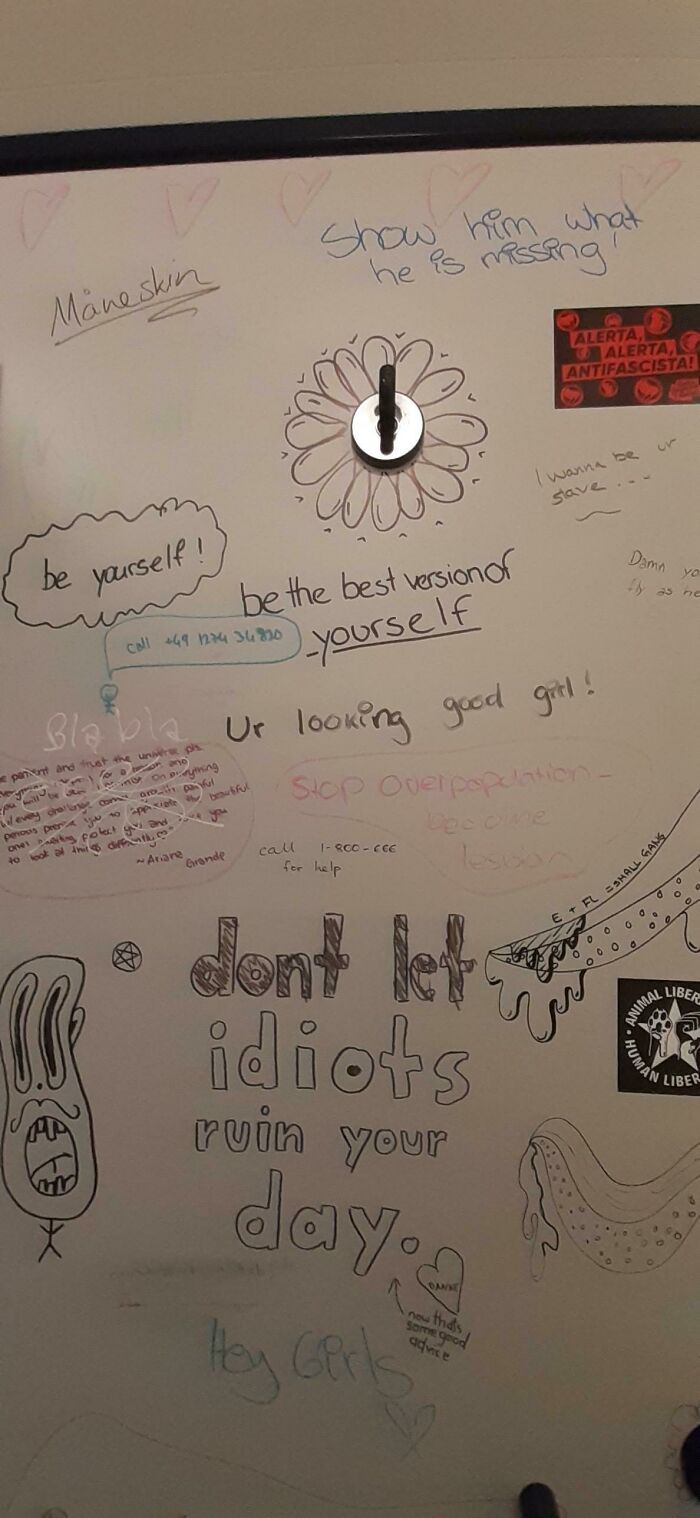 Show him what
he is missing!
Måneskin
ALERTA,
ALERTA,
ANTIFASCISTA!
I wanna be ur
slave ...
Damn yo
fly as he
be yourself!
be the best version of
yourself
call +49 1234 34820
Bla bla
Ur looking good girl!
e patient and trust the universe pls.
for a reason and
you will be on everything
every challenge comes growth painful
you to appreciate the beautiful
protect you and you
to look at things differently
~Ariana
Grande
Stop Overpopulation-
become
lesbian
call 1-800-666
for help
E + FL = SMALL GANG
dont let
idiots
ruin your
day.
ANIMAL LIBER
HUMAN LIBER
DANKE
now thats
some good
advice
Hey Girls